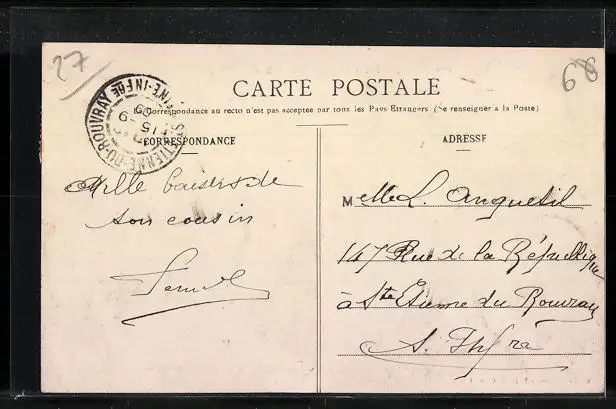 27
68
CARTE POSTALE
La Correspondance au recto n'est pas acceptée par tous les Pays Étrangers (Se renseigner à la Poste)
CORRESPONDANCE
ADRESSE
ST ETIENNE-DU-ROUVRAY
SEINE-INFRE
15 -9
Mille baisers de
son cousin
Melle L. Anquetil
147 Rue de la République
à Ste Etienne du Rouvray
S. Infre